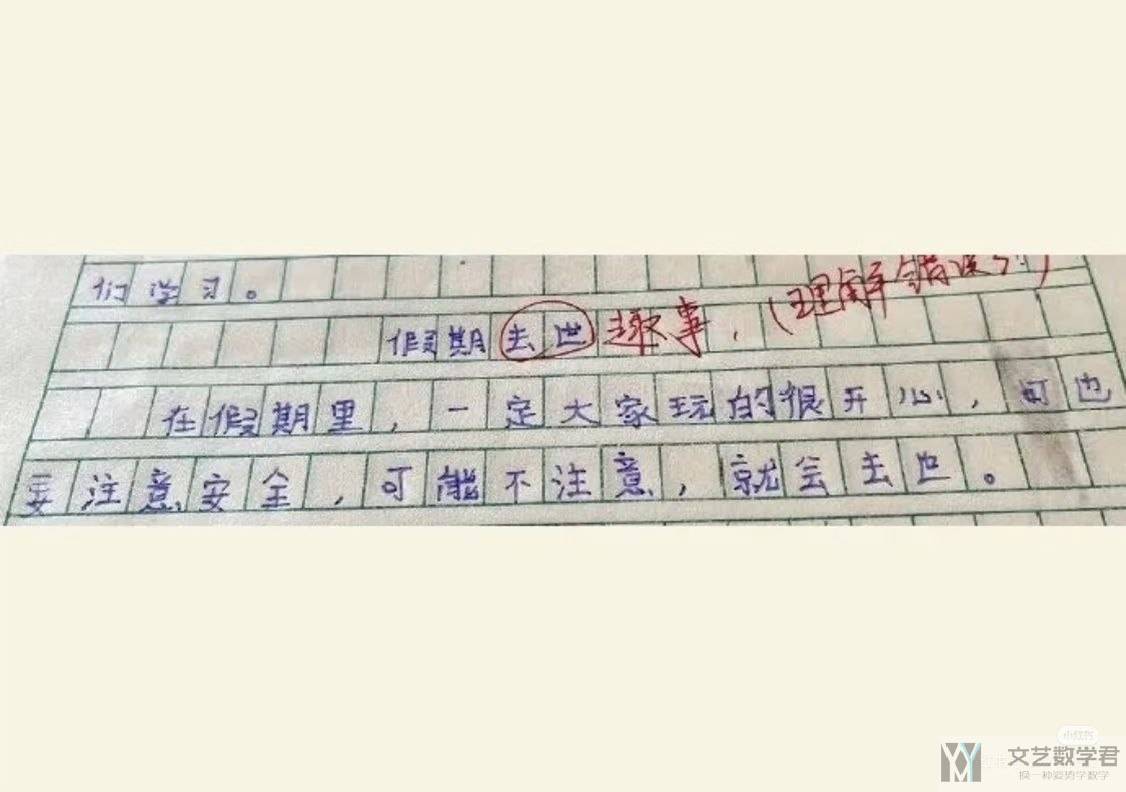 们学习。
假期去世 趣事，（理解错误了）
在假期里，一定大家玩的很开心，可也
要注意安全，可能不注意，就会去世。
小红书
文艺数学君
换一种姿势学数学